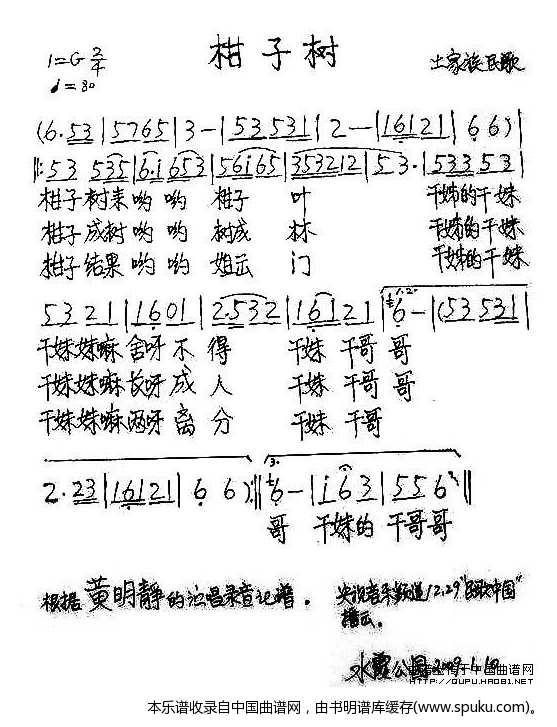 柑子树
1=G 2/4
♩=80
土家族民歌
(6·53|5765|3-|53531|2-|16121|66)|
‖:53 535|6·i653|56i65|353212|53·|53353|
柑子树来哟哟 柑子 叶 干妹的干妹
柑子成树哟哟 树成 林 干妹的干妹
柑子结果哟哟 姐出 门 干妹的干妹
5321|1601|2·532|16121|6-|(53531|
干妹妹嘛舍呀不得 干妹 干哥哥
干妹妹嘛长呀成人 干妹 干哥哥
干妹妹嘛两呀离分 干妹 干哥
2·23|16121|66):‖6-|i63|556‖
哥 干妹的 干哥哥
根据黄明静的演唱录音记谱。
央视音乐频道12.29"民歌中国"
播出。
水霞公园2009.1.10
传于中国曲谱网
HTTP://QUPU.HAO81.NET
本乐谱收录自中国曲谱网，由书明谱库缓存(www.spuku.com)。